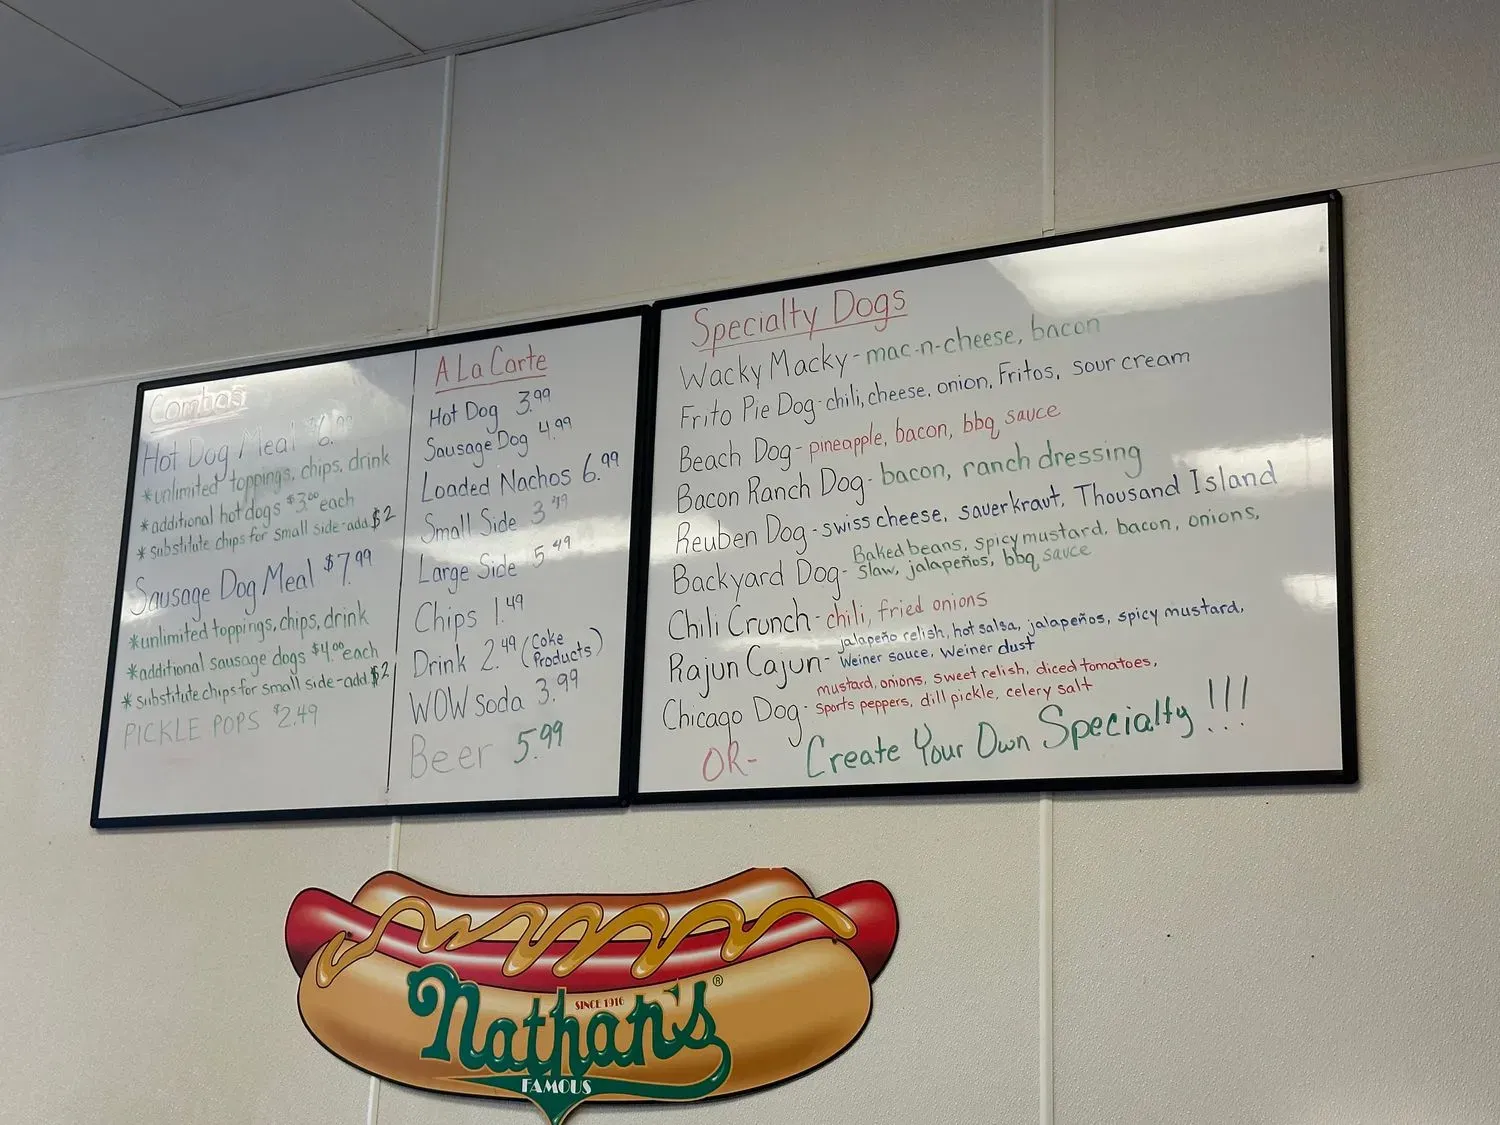 Combos
Hot Dog Meal $6.99
*unlimited toppings, chips, drink
*additional hot dogs $3.00 each
*substitute chips for small side-add $2
Sausage Dog Meal $7.99
*unlimited toppings, chips, drink
*additional sausage dogs $4.00 each
*substitute chips for small side-add $2
PICKLE POPS $2.49
A La Carte
Hot Dog 3.99
Sausage Dog 4.99
Loaded Nachos 6.99
Small Side
Large Side 5.49
Chips 1.49
Drink 2.49 (Coke
Products)
WOW Soda 3.99
Beer 5.99
Specialty Dogs
Wacky Macky - mac-n-cheese, bacon
Frito Pie Dog - chili, cheese, onion, Fritos, sour cream
Beach Dog - pineapple, bacon, bbq sauce
Bacon Ranch Dog - bacon, ranch dressing
Reuben Dog - swiss cheese, sauerkraut, Thousand Island
Backyard Dog - Baked beans, spicy mustard, bacon, onions,
slaw, jalapeños, bbq sauce
Chili Crunch - chili, fried onions
Rajun Cajun - jalapeño relish, hot salsa, jalapeños, spicy mustard,
Weiner sauce, Weiner dust
Chicago Dog - mustard, onions, sweet relish, diced tomatoes,
sports peppers, dill pickle, celery salt
OR- Create Your Own Specialty !!!
SINCE 1916
Nathan's®
FAMOUS